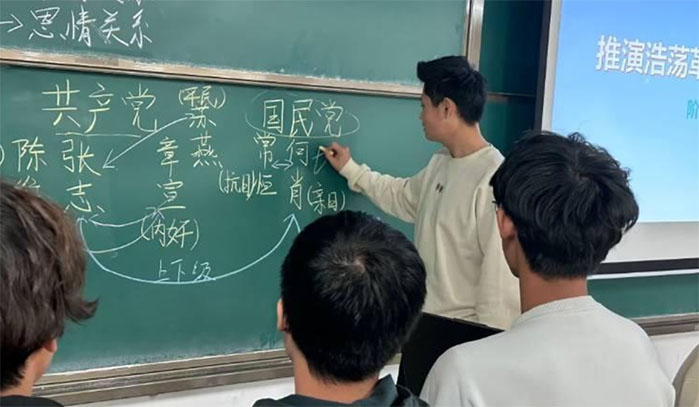 →恩情关系
推演浩荡
共产党 (平民) 国民党
陈 张 章 苏 常 何
志 宣 燕 (抗日) 肖(亲日)
(内奸)
上下级